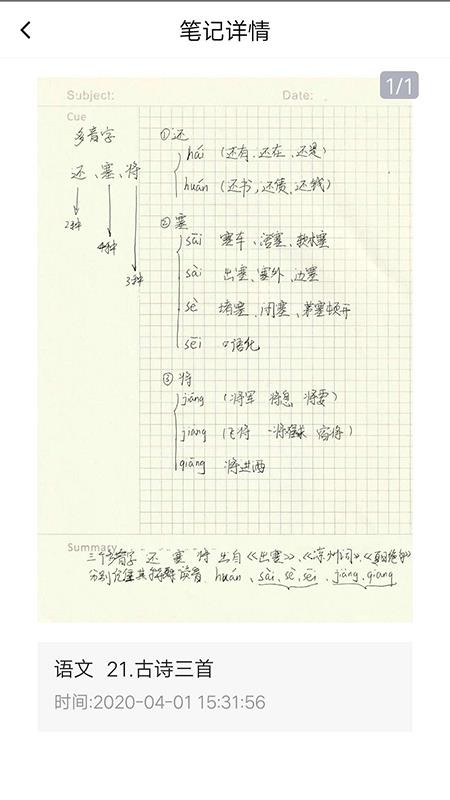 笔记详情
1/1
Subject:
Date:
Cue
多音字
还、塞、将
2种
4种
3种
①还
hái (还有、还在、还是)
huán (还书,还债、还钱)
②塞
sāi 塞车、活塞、软木塞
sài 出塞、塞外、边塞
sè 堵塞、闭塞、茅塞顿开
sēi 口语化
③将
jiāng (将军 将息 将要)
jiàng (飞将
qiāng 将进酒
Summary
三个多音字 还 塞 将 出自《出塞》、《凉州词》、《夏日绝句》
分别 其 读音 huán、sài、sè、sēi、jiāng、qiang
语文 21.古诗三首
时间:2020-04-01 15:31:56